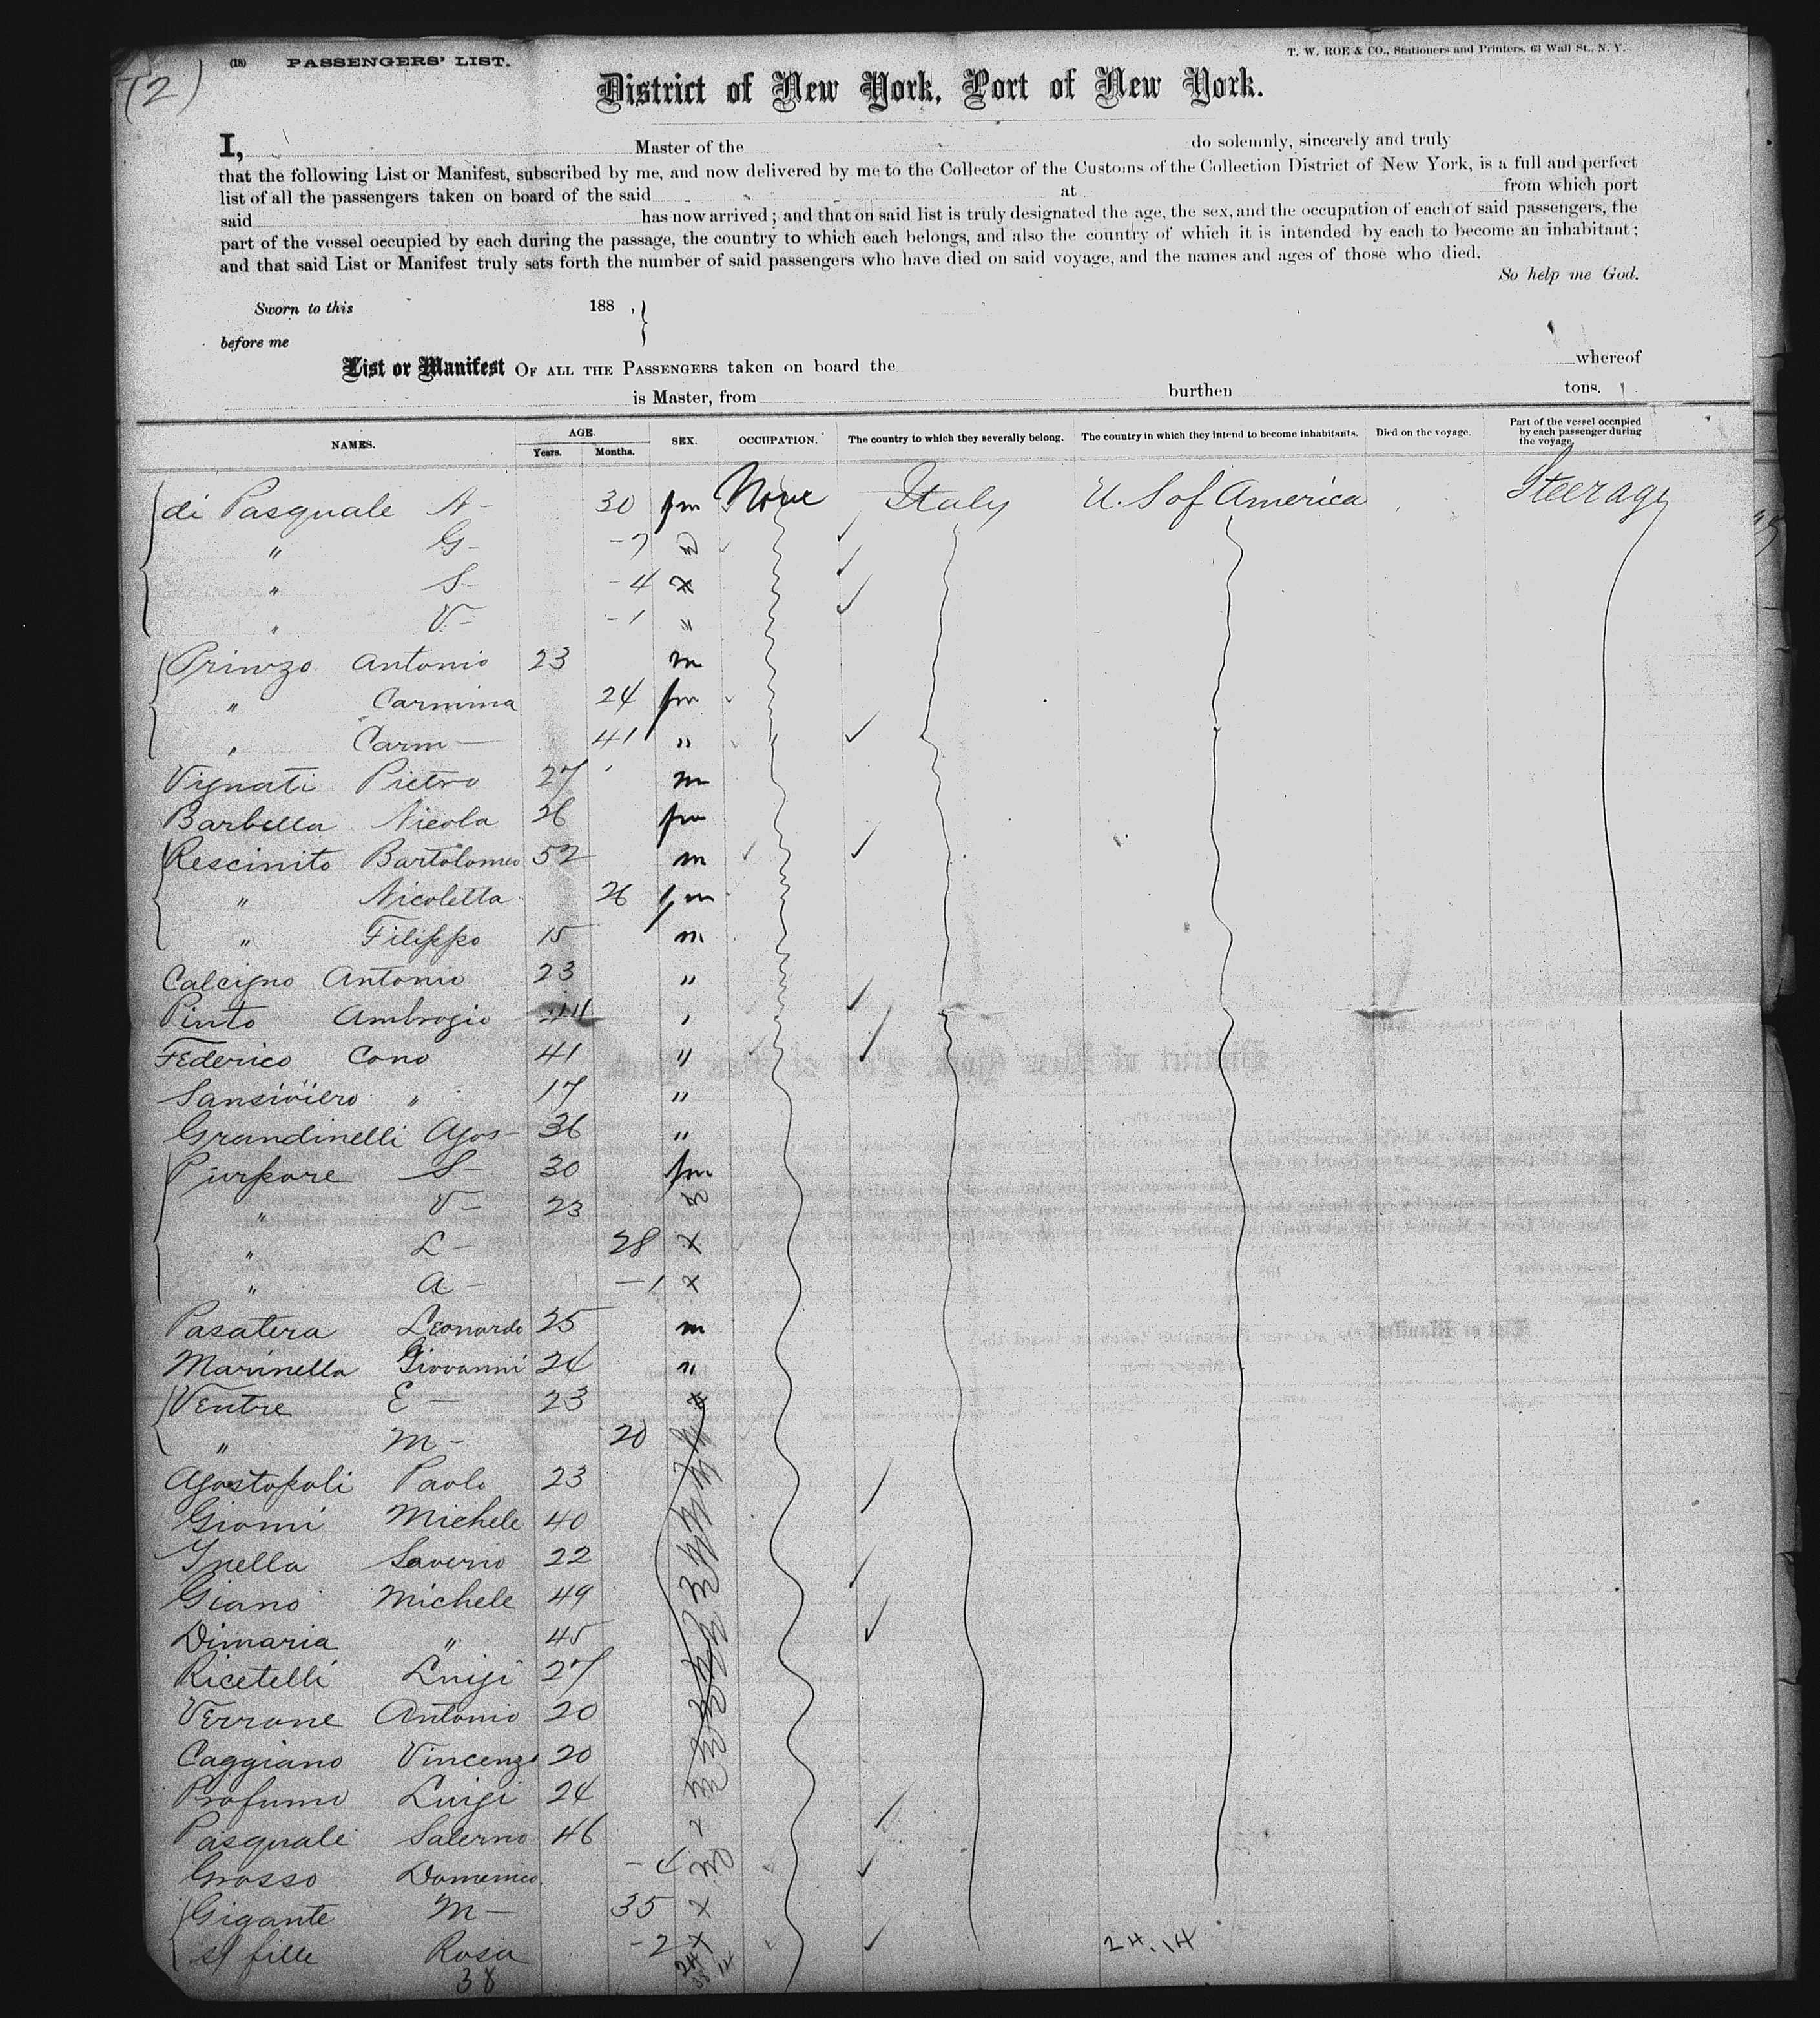 (2)
(18) PASSENGERS' LIST. T. W. ROE & CO., Stationers and Printers, 63 Wall St., N. Y.
District of New York, Port of New York.
I, Master of the do solemnly, sincerely and truly
that the following List or Manifest, subscribed by me, and now delivered by me to the Collector of the Customs of the Collection District of New York, is a full and perfect
list of all the passengers taken on board of the said at from which port
said has now arrived; and that on said list is truly designated the age, the sex, and the occupation of each of said passengers, the
part of the vessel occupied by each during the passage, the country to which each belongs, and also the country of which it is intended by each to become an inhabitant;
and that said List or Manifest truly sets forth the number of said passengers who have died on said voyage, and the names and ages of those who died.
So help me God.
Sworn to this 188 ,
before me
List or Manifest OF ALL THE PASSENGERS taken on board the whereof
is Master, from burthen tons.
NAMES. AGE. Years. Months. SEX. OCCUPATION. The country to which they severally belong. The country in which they intend to become inhabitants. Died on the voyage. Part of the vessel occupied by each passenger during the voyage.
di Pasquale N- 30 fm None Italy U. S of America Steerage
" G- -7 m
" S- -4 x
" V- -1 "
Prinzo Antonio 23 m
" Carmina 24 fm
" Carm- 41 "
Vignati Pietro 27 m
Barbella Nicola 26 fm
Rescinito Bartolomeo 52 m
" Nicoletta 26 fm
" Filippo 15 m
Calcigno Antonio 23 "
Pinto Ambrogio 44 "
Federico Cono 41 "
Sansiviero " 17 "
Grandinelli Agos- 36 "
Purpore S- 30 fm
" V- 23 m
" L- 28 x
" A- -1 x
Pasatera Leonardo 25 m
Marinella Giovanni 24 "
Ventre E- 23 x
" M- 20
Agostopoli Paolo 23 m
Giomi Michele 40 m
Ynella Saverio 22 m
Giano Michele 49 m
Dimaria " 45 m
Ricetelli Luigi 27 m
Verrone Antonio 20 m
Caggiano Vincenzo 20 m
Profumo Luigi 24 m
Pasquale Salerno 46
Grosso Domenico -4 m
Gigante M- 35 x
s/ fille Rosa -2 x
38 24 14 24.14